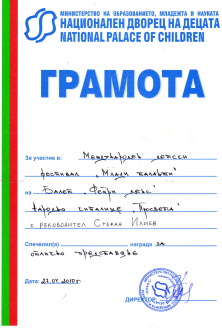 МИНИСТЕРСТВО НА ОБРАЗОВАНИЕТО, МЛАДЕЖТА И НАУКАТА
НАЦИОНАЛЕН ДВОРЕЦ НА ДЕЦАТА
NATIONAL PALACE OF CHILDREN
ГРАМОТА
За участие в: Международен детски
фестивал „Млади таланти"
на Балет „Фейри
Народно читалище „Просвета"
с ръководител Стефан Илиев
Спечелил(а) награда за
отлично представяне
Дата: 23.04.2010 г.
ДИРЕКТОР: